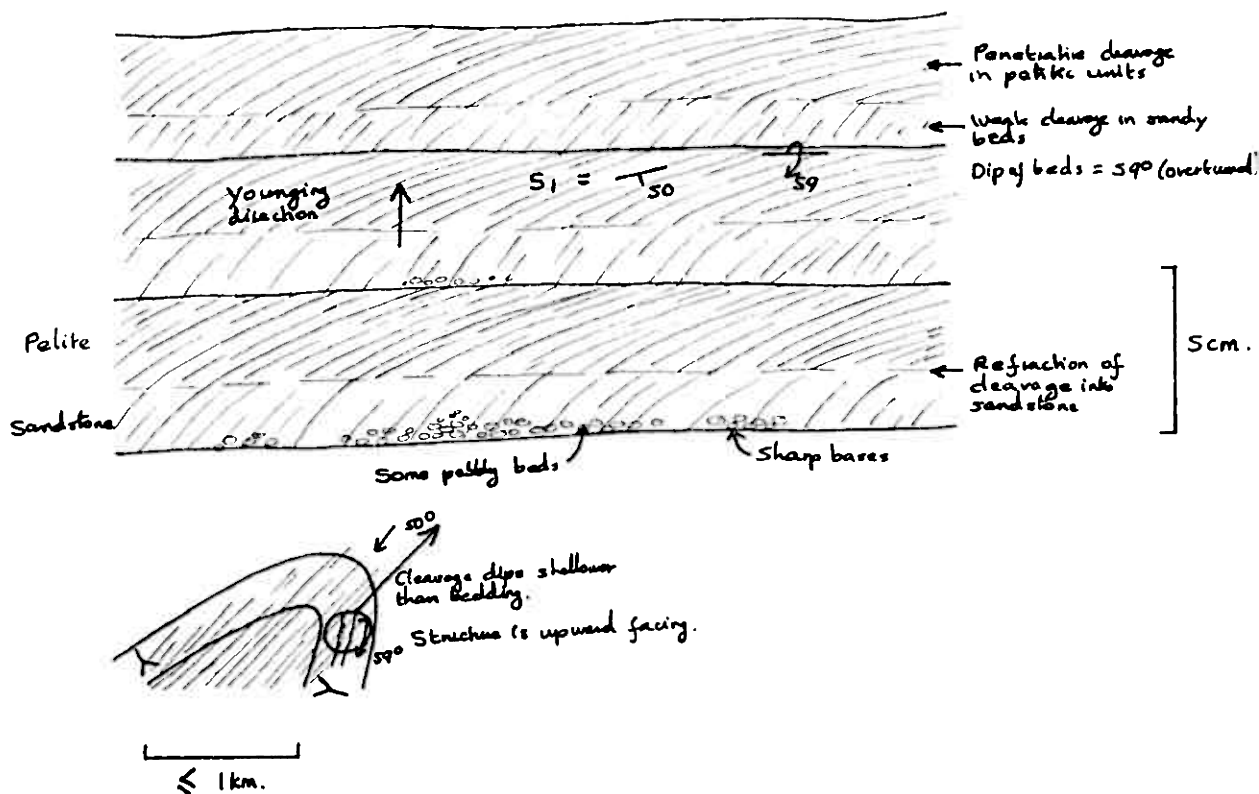 Penetrative cleavage
in pelitic units
Weak cleavage in sandy
beds
Dip of beds = 59° (overturned)
Younging
direction
S1 =
50
59
Pelite
Sandstone
5cm.
Refraction of
cleavage into
sandstone
Some pebbly beds
Sharp bases
50°
Cleavage dips shallower
than bedding.
59°
Structure is upward facing.
≤ 1km.